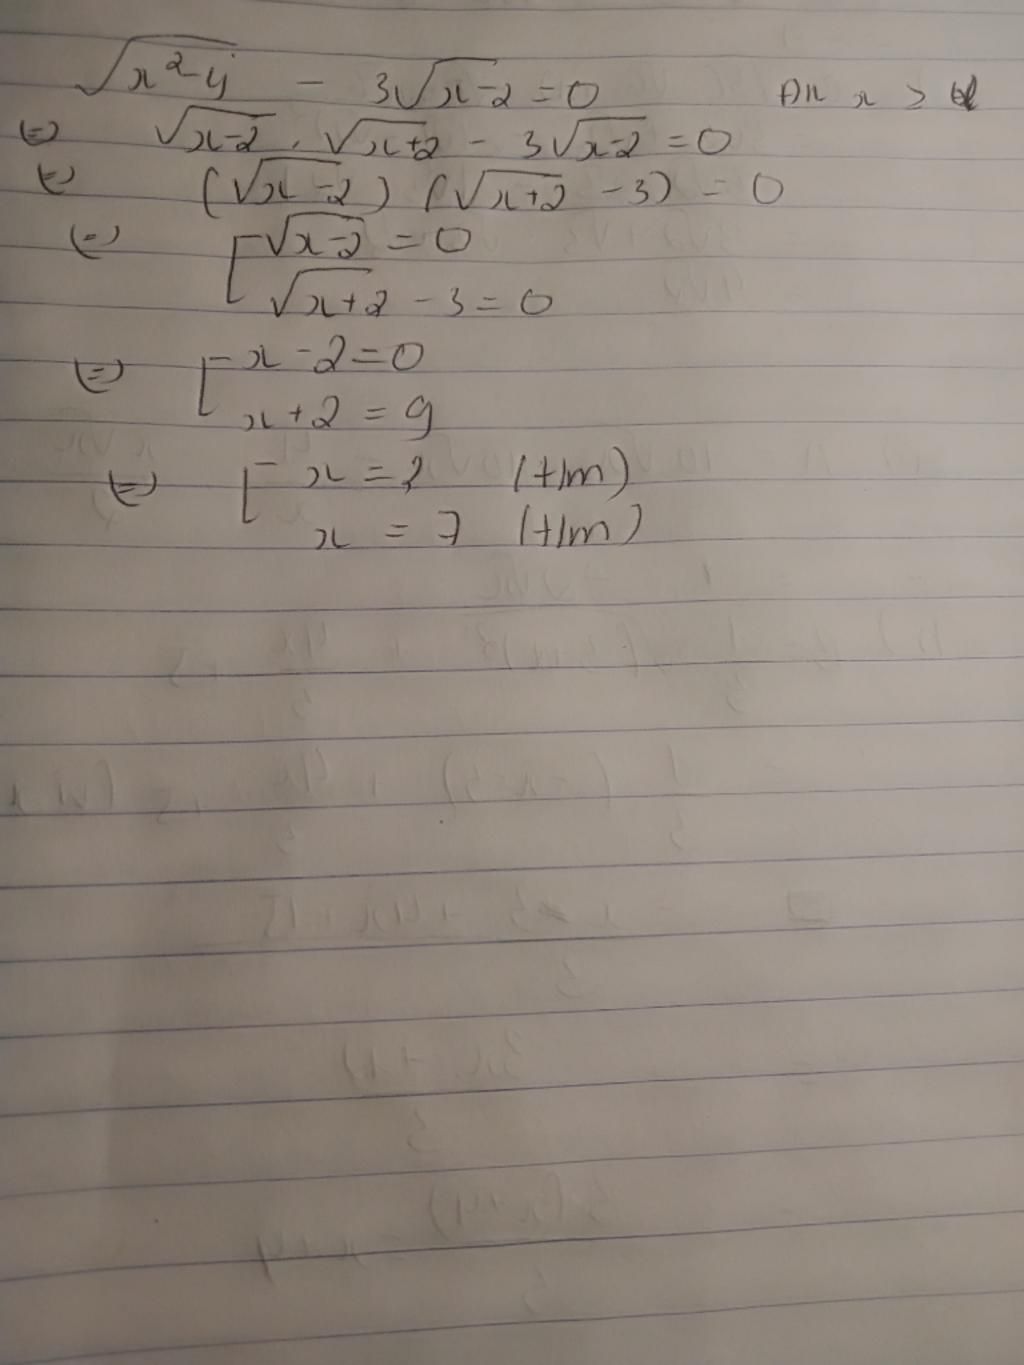 √(x²-4) - 3√(x-2) = 0 ĐK x >
(=) √(x-2) . √(x+2) - 3√(x-2) = 0
(=) (√(x-2)) (√(x+2) - 3) = 0
(=) [ √(x-2) = 0
√(x+2) - 3 = 0
(=) [ x - 2 = 0
x + 2 = 9
(=) [ x = 2 (t/m)
x = 7 (t/m)